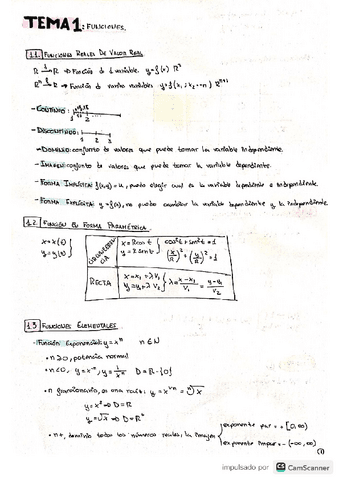 TEMA 1: FUNCIONES.
1.1. FUNCIONES REALES DE VALOR REAL
R → R ⇒ Función de 1 variable. y=f(x) R²
Rⁿ → R ⇒ Función de varias variables y=f(x₁, x₂...n) Rⁿ⁺¹
- CONTINUO:
1 2 3
- DISCONTINUO:
1 2 3
→ DOMINIO: conjunto de valores que puede tomar la variable independiente.
- IMAGEN: conjunto de valores que puede tomar la variable dependiente.
- FORMA IMPLÍCITA: f(x,y)=k, puedo elegir cual es la variable dependiente e independiente.
- FORMA EXPLÍCITA: y=f(x), no puedo cambiar la variable dependiente y la independiente.
1.2. FUNCIÓN EN FORMA PARAMÉTRICA.
x=x(t)
y=y(t)
CIRCUNFERENCIA
x=R cos t
y=R sin t
cos²t + sin²t = 1
(x/R)² + (y/R)² = 1
RECTA
x=x₁+λV₁
y=y₁+λV₂
λ = x-x₁/V₁ = y-y₁/V₂
1.3 FUNCIONES ELEMENTALES
- Función Exponencial: y=xⁿ n∈N
• n>0, potencia normal
• n<0, y=x⁻ⁿ, y=1/xⁿ D=R-{0}
• n fraccionario, es una raíz: y=x^1/n = ⁿ√x
y=x² ⇒ D=R
y=√x ⇒ D=R⁺
• n+, dominio todos los números reales, la imagen
exponente par = [0,∞)
exponente impar = (-∞,∞)
(1)
impulsado por CS CamScanner